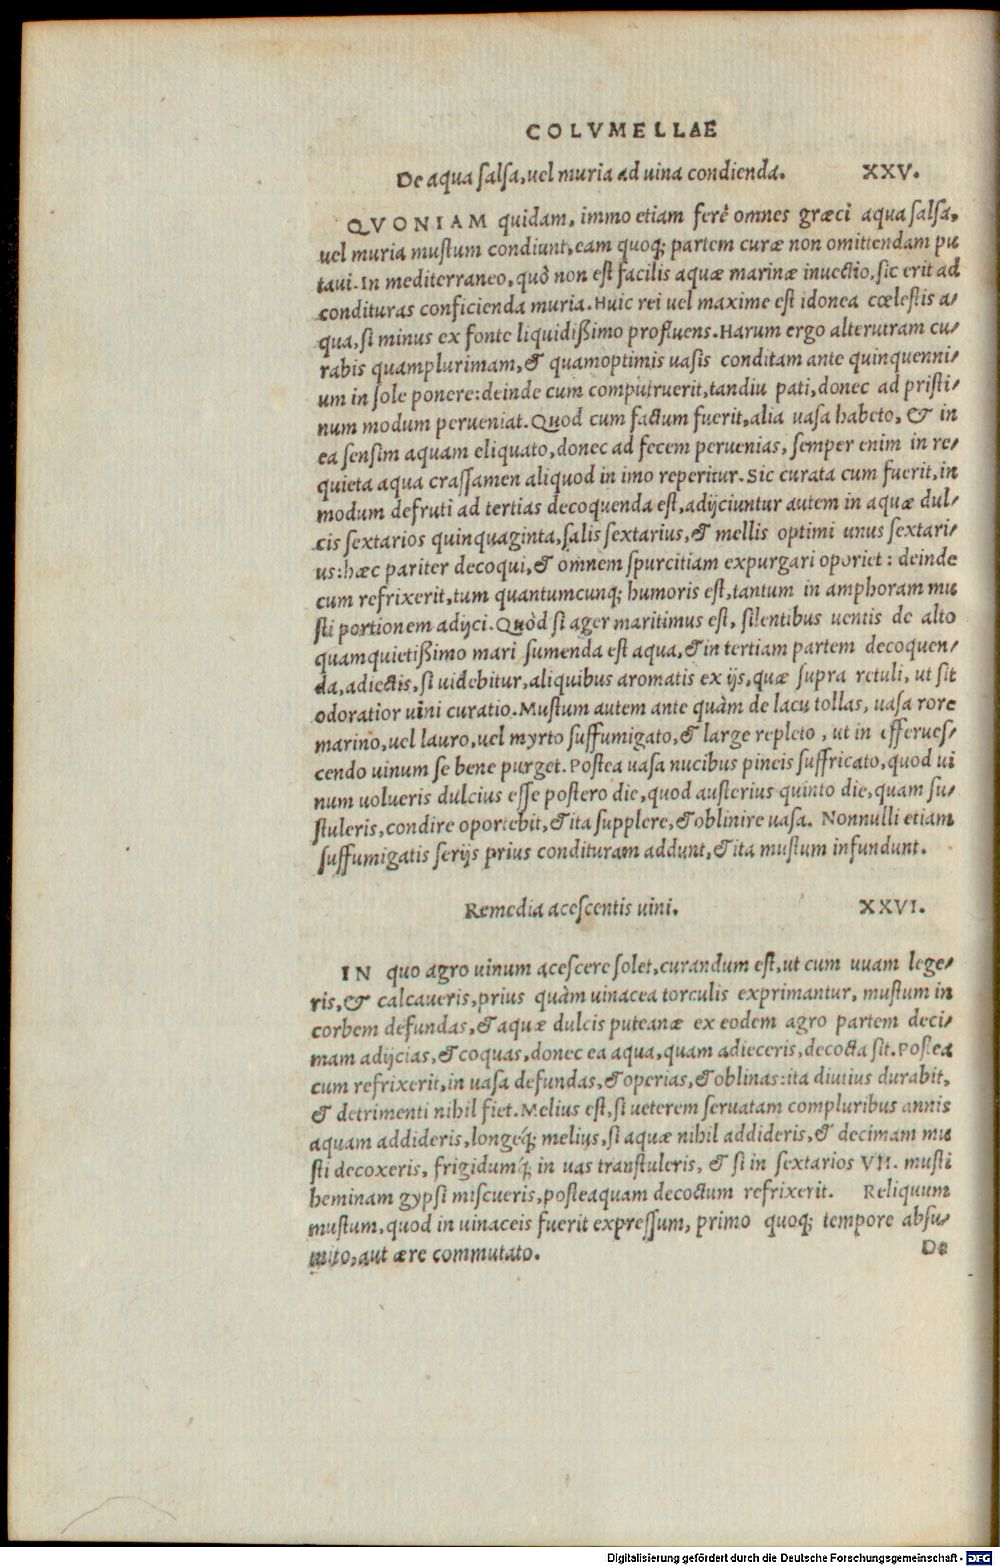 COLVMELLAE
De aqua salsa, uel muria ad uina condienda. XXV.
QVONIAM quidam, immo etiam ferè omnes græci aqua salsa,
uel muria mustum condiunt, eam quoq; partem curæ non omittendam pu
taui. In mediterraneo, quò non est facilis aquæ marinæ inuectio, sic erit ad
condituras conficienda muria. Huic rei uel maxime est idonea cœlestis a-
qua, si minus ex fonte liquidißimo profluens. Harum ergo alterutram cu-
rabis quamplurimam, & quamoptimis uasis conditam ante quinquenni-
um in sole ponere: deinde cum computruerit, tandiu pati, donec ad pristi-
num modum perueniat. Quod cum factum fuerit, alia uasa habeto, & in
ea sensim aquam eliquato, donec ad fecem peruenias, semper enim in re-
quieta aqua crassamen aliquod in imo reperitur. Sic curata cum fuerit, in
modum defruti ad tertias decoquenda est, adijciuntur autem in aquæ dul-
cis sextarios quinquaginta, salis sextarius, & mellis optimi unus sextari-
us: hæc pariter decoqui, & omnem spurcitiam expurgari oportet: deinde
cum refrixerit, tum quantumcunq; humoris est, tantum in amphoram mu
sti portionem adijci. Quòd si ager maritimus est, silentibus uentis de alto
quamquietißimo mari sumenda est aqua, & in tertiam partem decoquen-
da, adiectis, si uidebitur, aliquibus aromatis ex ijs, quæ supra retuli, ut sit
odoratior uini curatio. Mustum autem ante quàm de lacu tollas, uasa rore
marino, uel lauro, uel myrto suffumigato, & large repleto, ut in efferues-
cendo uinum se bene purget. Postea uasa nucibus pineis suffricato, quod ui
num uolueris dulcius esse postero die, quod austerius quinto die, quam su-
stuleris, condire oportebit, & ita supplere, & oblinire uasa. Nonnulli etiam
suffumigatis serijs prius condituram addunt, & ita mustum infundunt.
Remedia acescentis uini. XXVI.
IN quo agro uinum acescere solet, curandum est, ut cum uuam lege-
ris, & calcaueris, prius quàm uinacea torculis exprimantur, mustum in
corbem defundas, & aquæ dulcis puteanæ ex eodem agro partem deci-
mam adijcias, & coquas, donec ea aqua, quam adieceris, decocta sit. Postea
cum refrixerit, in uasa defundas, & operias, & oblinas: ita diutius durabit,
& detrimenti nihil fiet. Melius est, si ueterem seruatam compluribus annis
aquam addideris, longeq́; melius, si aquæ nihil addideris, & decimam mu
sti decoxeris, frigidumq́; in uas transtuleris, & si in sextarios VII. musti
heminam gypsi miscueris, posteaquam decoctum refrixerit. Reliquum
mustum, quod in uinaceis fuerit expressum, primo quoq; tempore absu-
mito, aut ære commutato. De
Digitalisierung gefördert durch die Deutsche Forschungsgemeinschaft - DFG